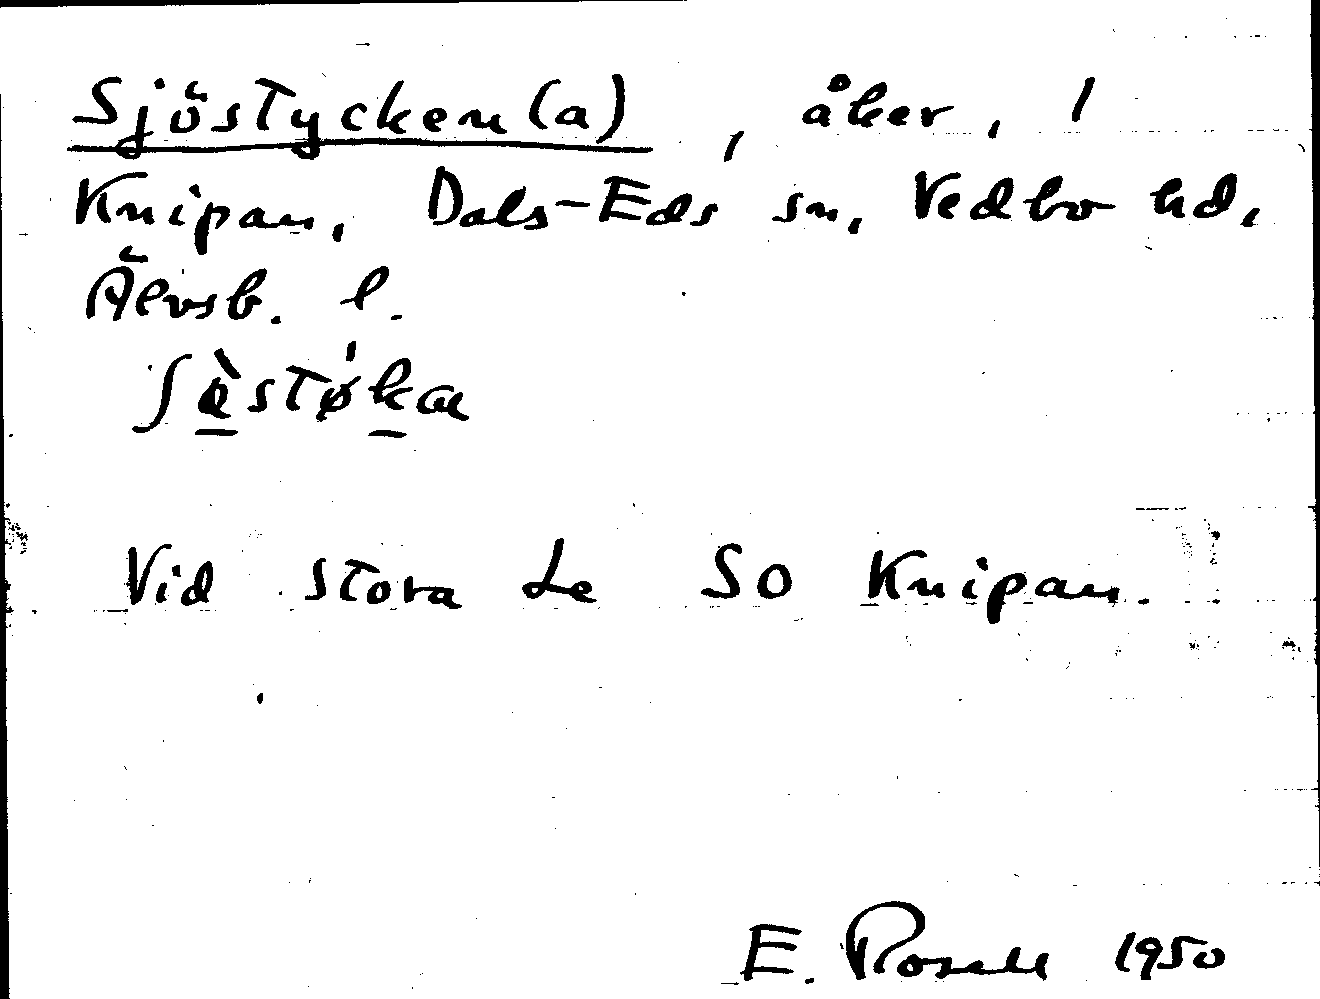 Sjöstycken(a), åker, 1
Knipan, Dals-Eds sn, Vedbo hd,
Älvsb. l.
Vid Stora Le SO Knipan.
E. Rosell 1950